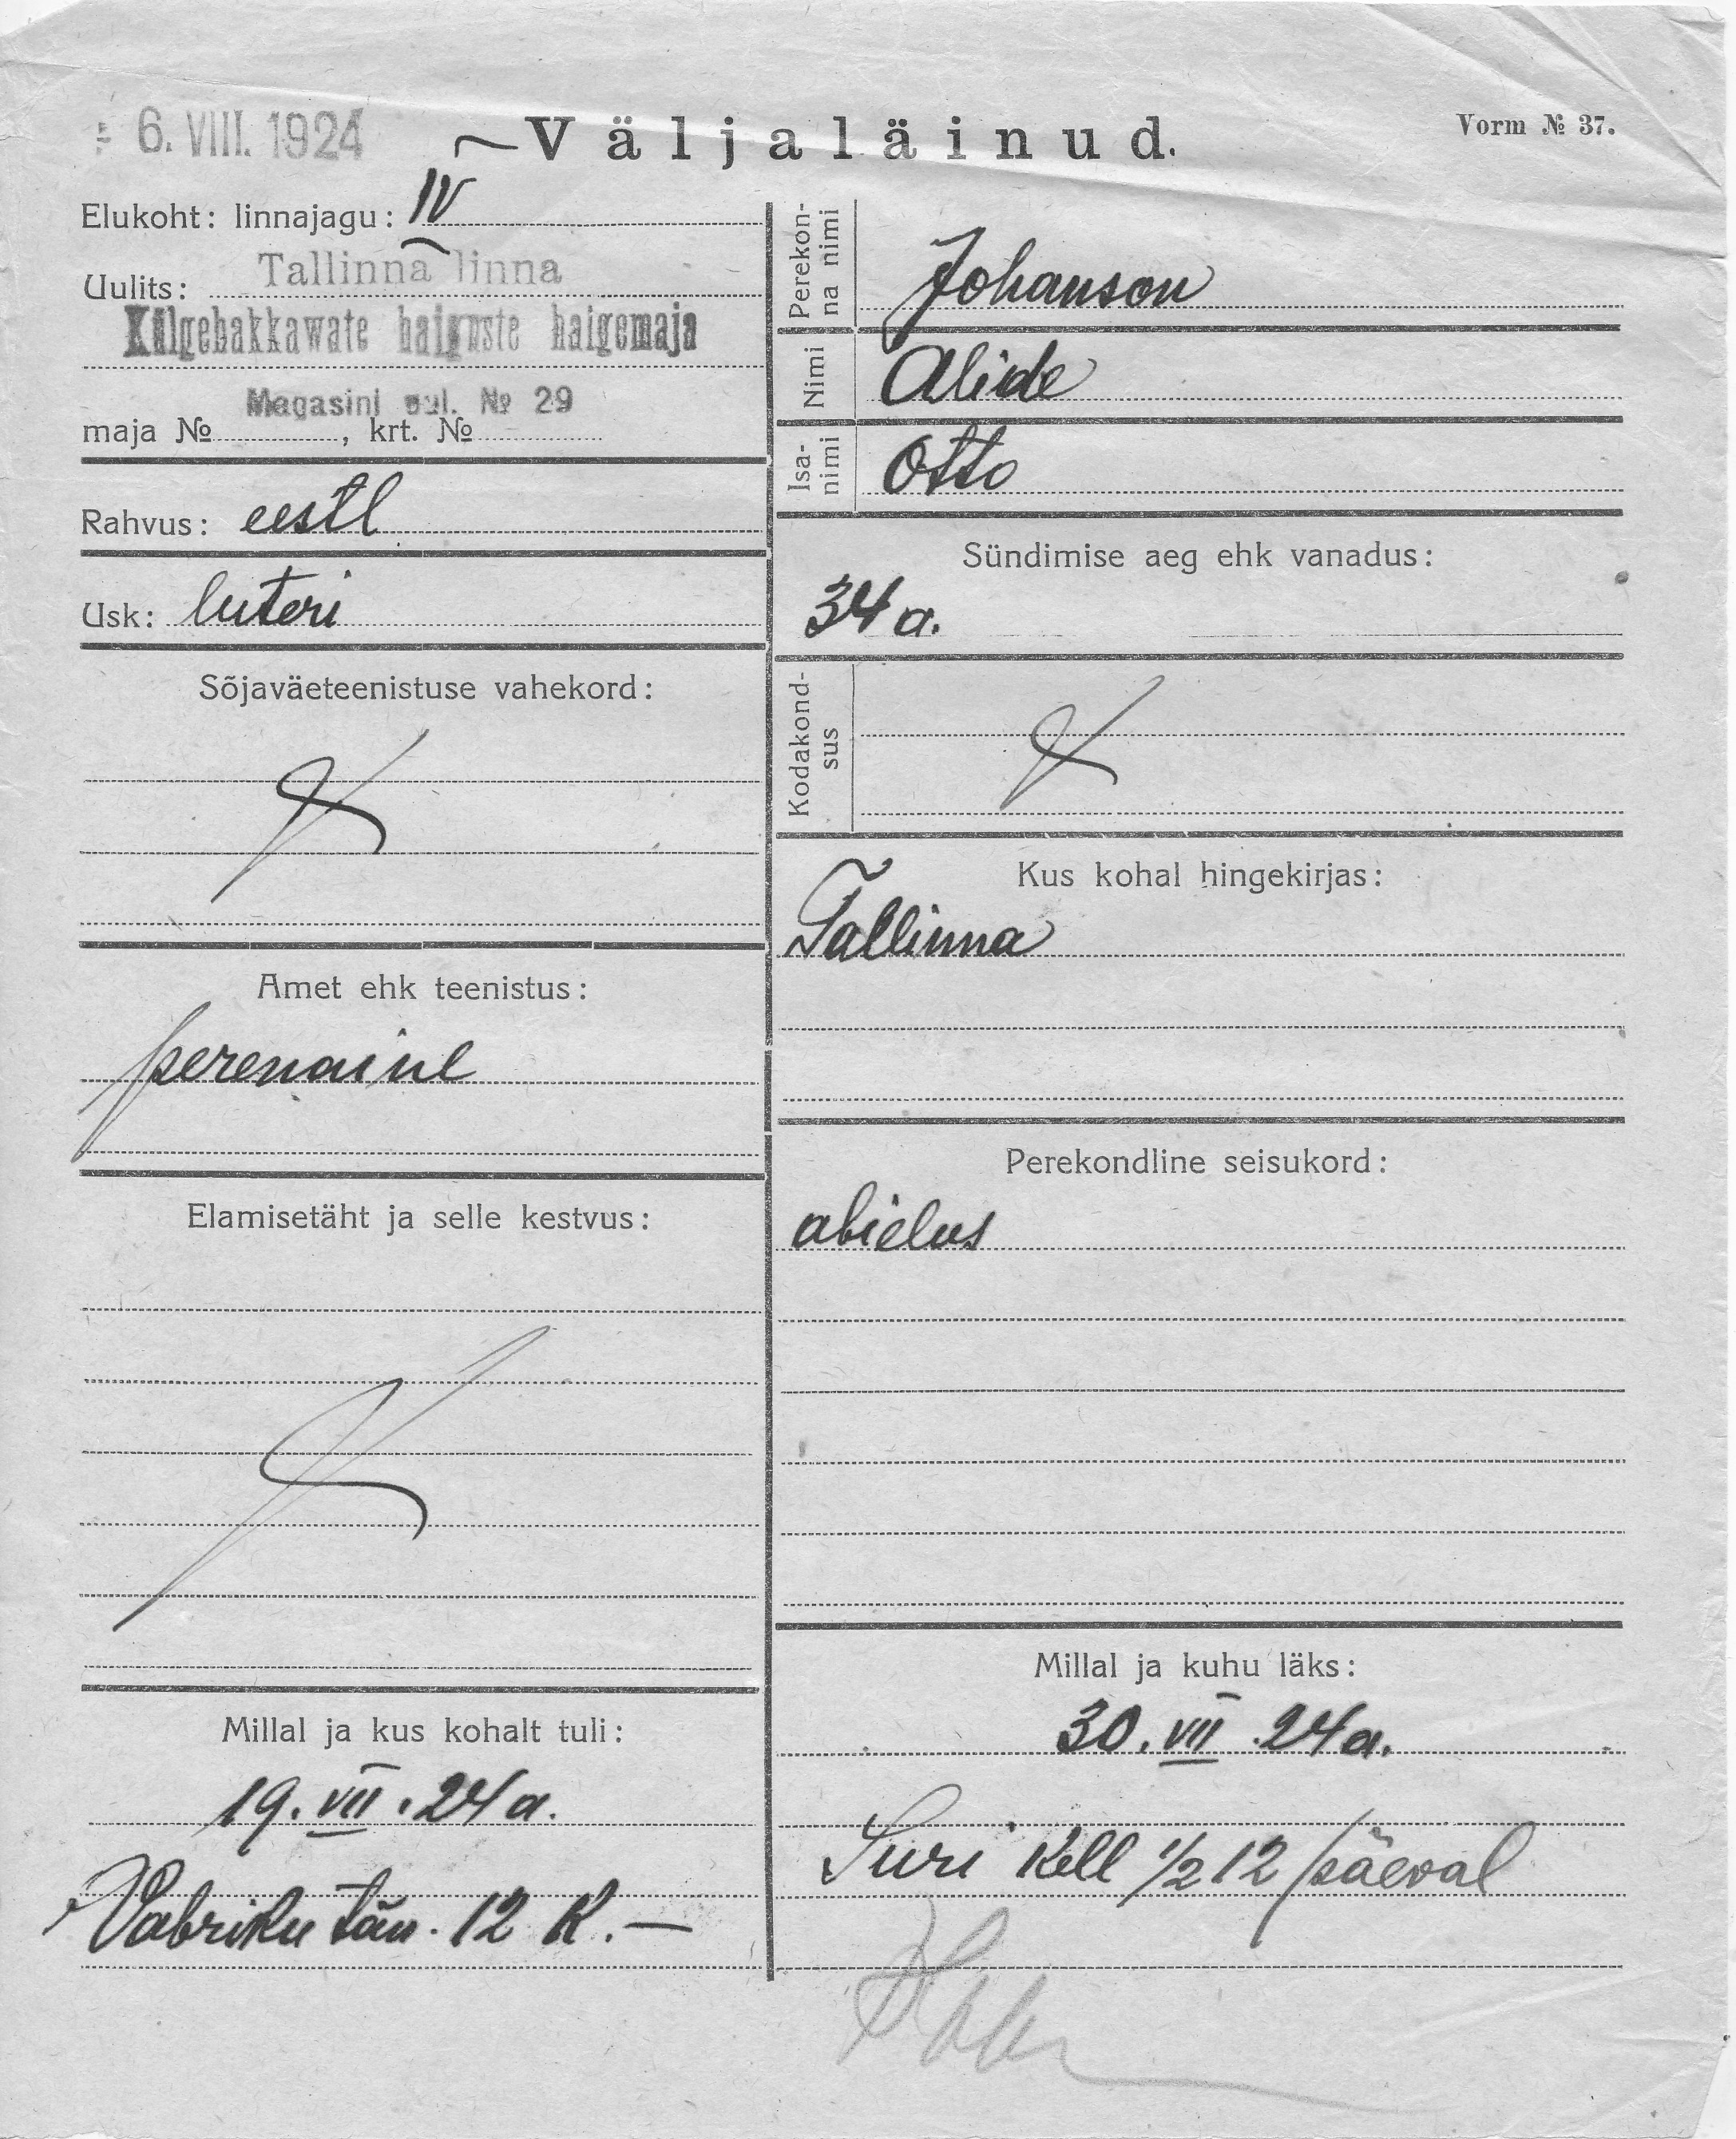 - 6. VIII. 1924
Väljaläinud.
Vorm № 37.
Elukoht: linnajagu: IV
Uulits: Tallinna linna
Külgehakkawate haiguste haigemaja
Magasini uul. № 29
maja № , krt. №
Rahvus: eestl
Usk: luteri
Sõjaväeteenistuse vahekord:
Amet ehk teenistus:
perenaine
Elamisetäht ja selle kestvus:
Millal ja kus kohalt tuli:
19. VII. 24 a.
Vabriku tän. 12 K. —
Perekon-
na nimi
Johanson
Nimi Alide
Isa-
nimi
Otto
Sündimise aeg ehk vanadus:
34 a.
Kodakond-
sus
Kus kohal hingekirjas:
Tallinna
Perekondline seisukord:
abielus
Millal ja kuhu läks:
30. VII. 24 a.
Suri kell 1/2 12 päeval